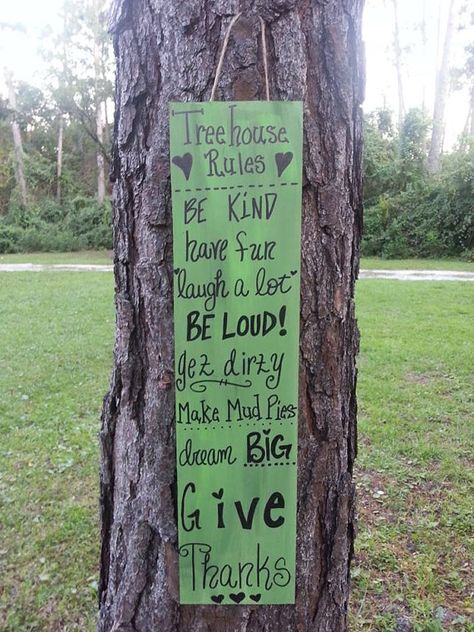 Treehouse
Rules
BE KIND
have fun
"laugh a lot"
BE LOUD!
get dirty
Make Mud Pies
dream BIG
Give
Thanks